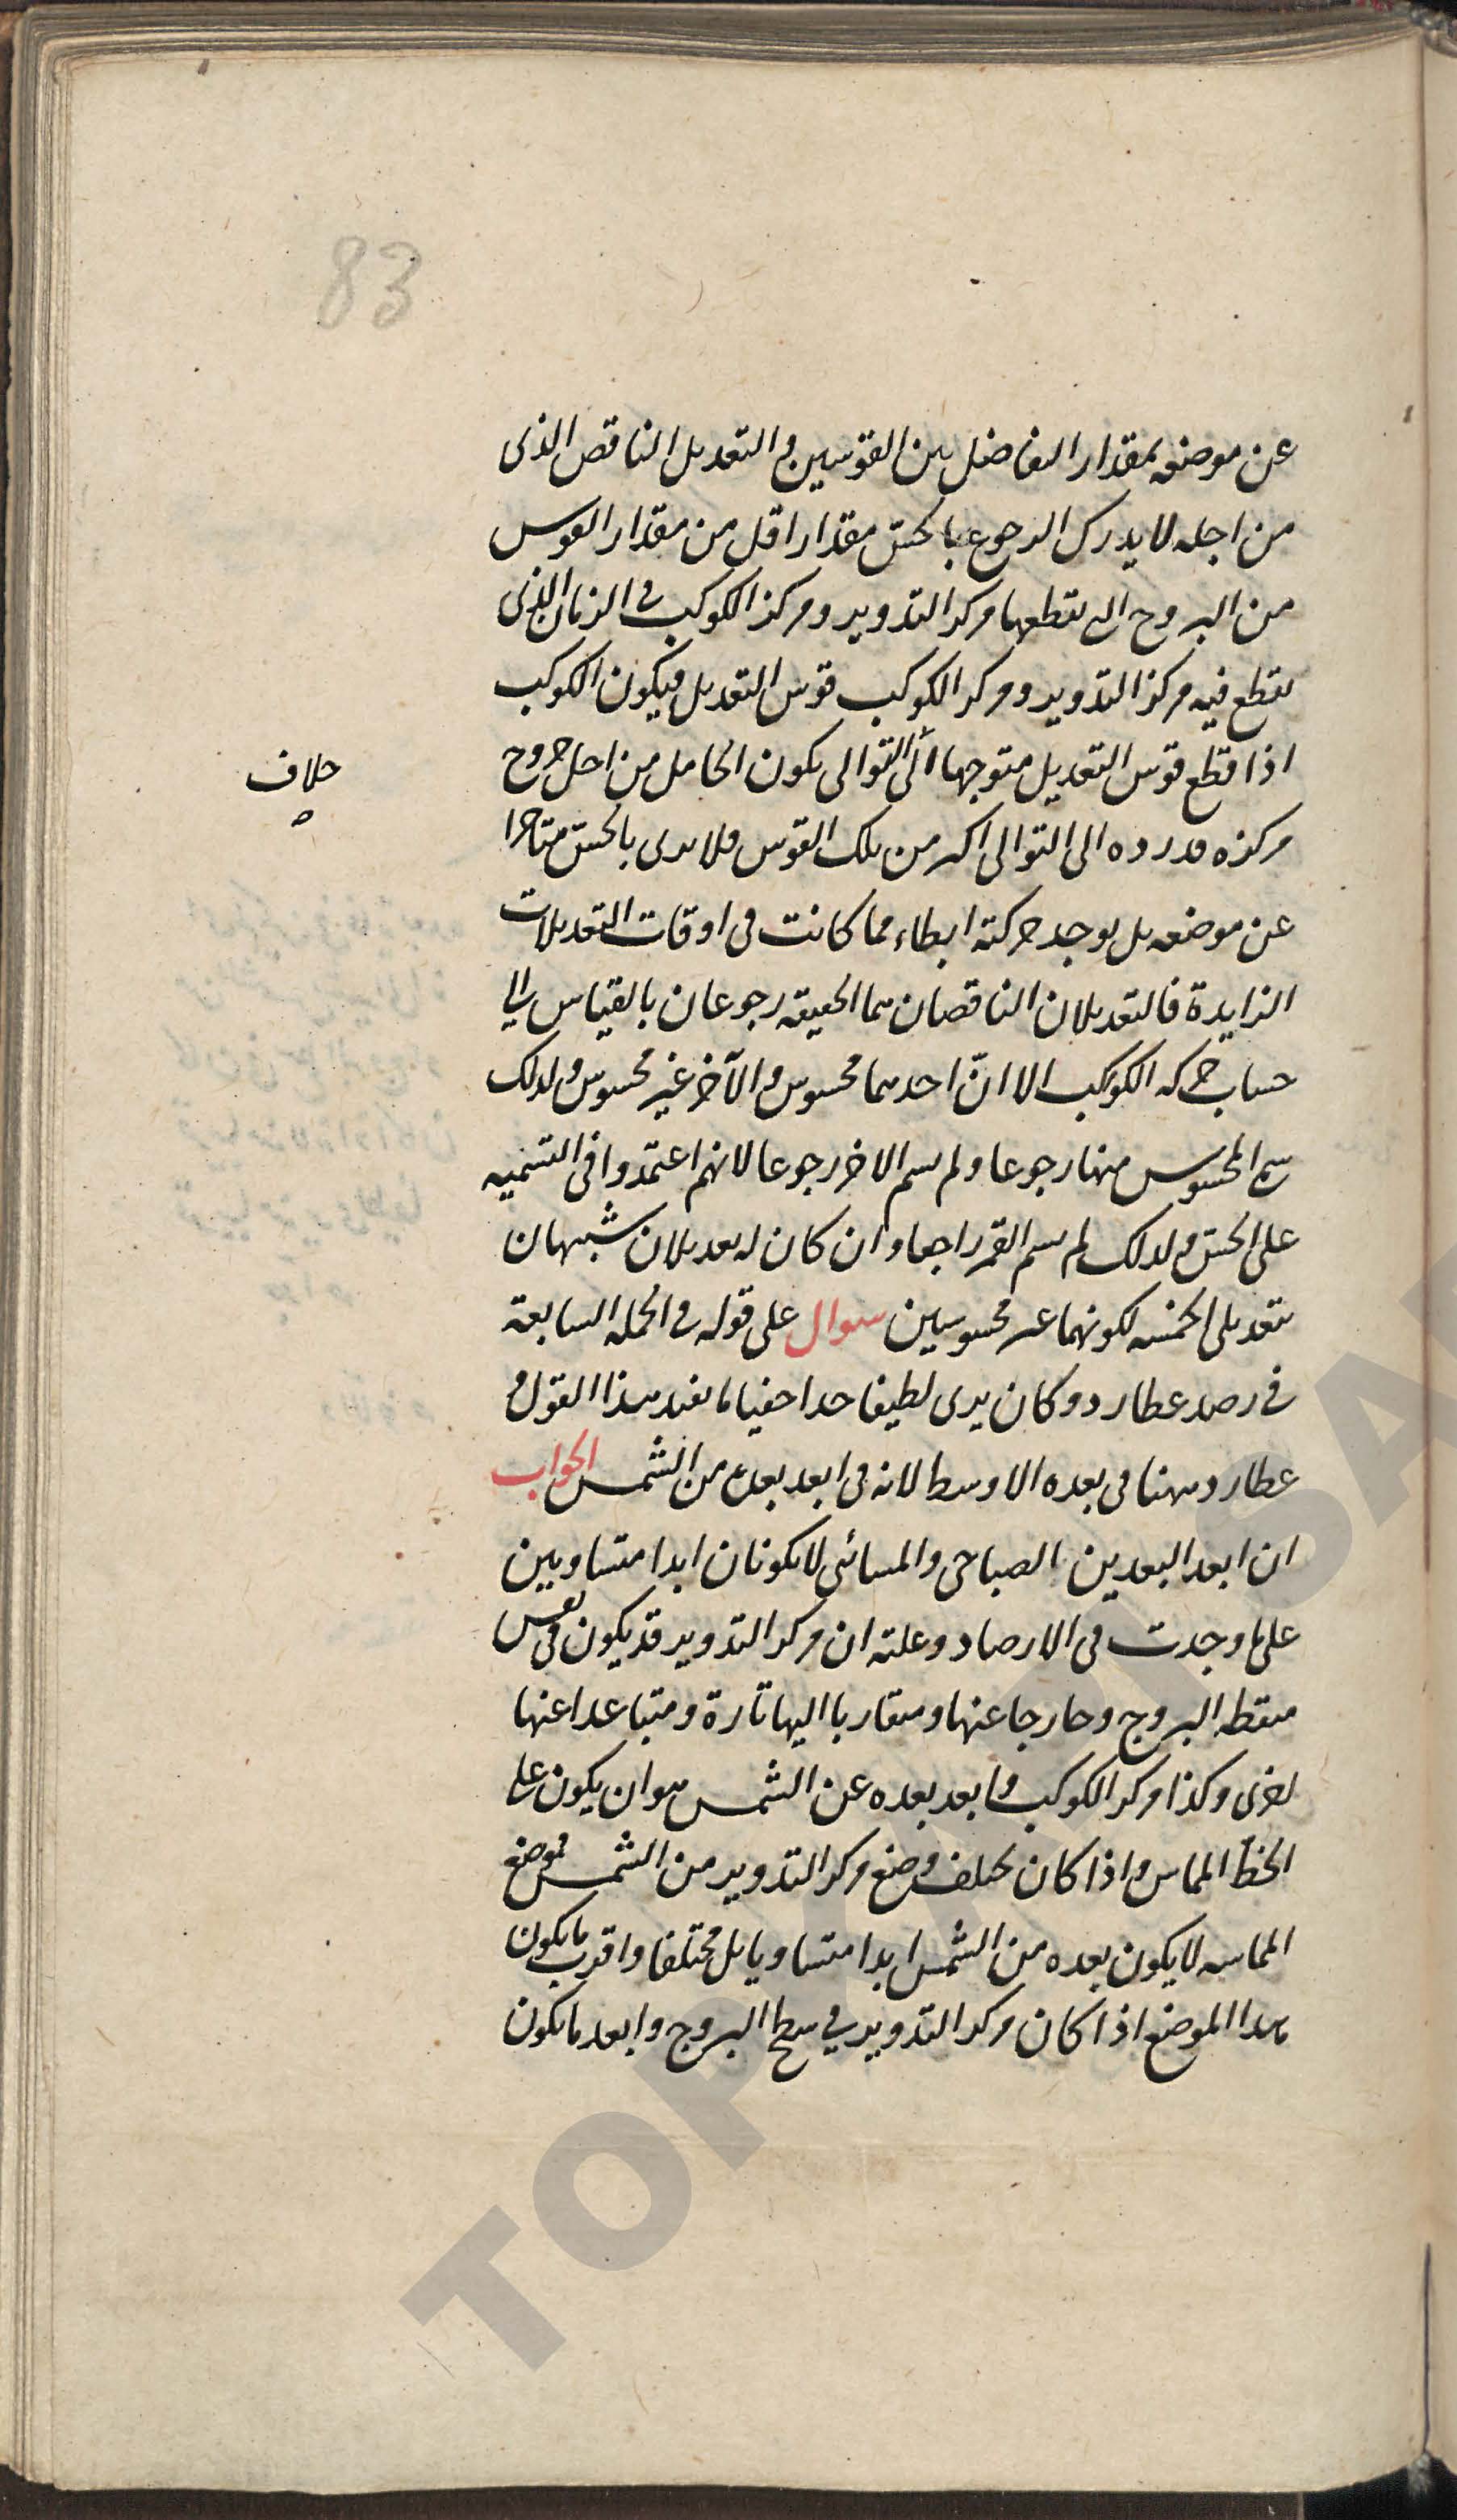 83
عن موضعه بمقدار التفاضل بين القوسين والتعديل الناقص الذى
من اجله لا يدرك الرجوع بالحس مقدار اقل من مقدار القوس
من البروج التى يقطعها مركز التدوير ومركز الكوكب فى الزمان الذى
يقطع فيه مركز التدوير ومركز الكوكب قوس التعديل فيكون الكوكب
اذا قطع قوس التعديل متوجها الى التوالى يكون الحامل من اجل خروج
خلاف
مركزه قد رده الى التوالى اكثر من تلك القوس فلا يرى بالحس متاخرا
عن موضعه بل يوجد حركته ابطاء مما كانت فى اوقات التعديلات
الزايدة فالتعديلان الناقصان هما بالحقيقه رجوعان بالقياس الى
حساب حركه الكوكب الا انّ احدهما محسوس والآخر غير محسوس ولذلك
سمى المحسوس منها رجوعا ولم يسم الاخر رجوعا لانهم اعتمدوا فى التسميه
على الحس ولذلك لم يسم القمر راجعا وان كان له تعديلان شبيهان
بتعديلى الخمسه لكونهما غير محسوسين سوال على قوله فى الجمله السابعة
فى رصد عطارد وكان يرى لطيفا جدا خفيا ما يفيد هذا القول و
عطارد ههنا فى بعده الاوسط لانه فى ابعد بعده من الشمس الجواب
ان ابعد البعدين الصباحى والمسائى لا يكونان ابدا متساويين
على ما وجدت فى الارصاد وعلته ان مركز التدوير قد يكون فى نفس
منطقه البروج وخارجا عنها ومتقاربا اليها تارة ومتباعدا عنها
اخرى وكذا مركز الكوكب وابعد بعده عن الشمس هو ان يكون على
الخط المماس واذا كان يختلف وضع مركز التدوير من الشمس فموضع
المماسه لا يكون بعده من الشمس ابدا متساويا بل مختلفا واقرب ما يكون
هذا الموضع اذا كان مركز التدوير فى سطح البروج وابعد ما يكون